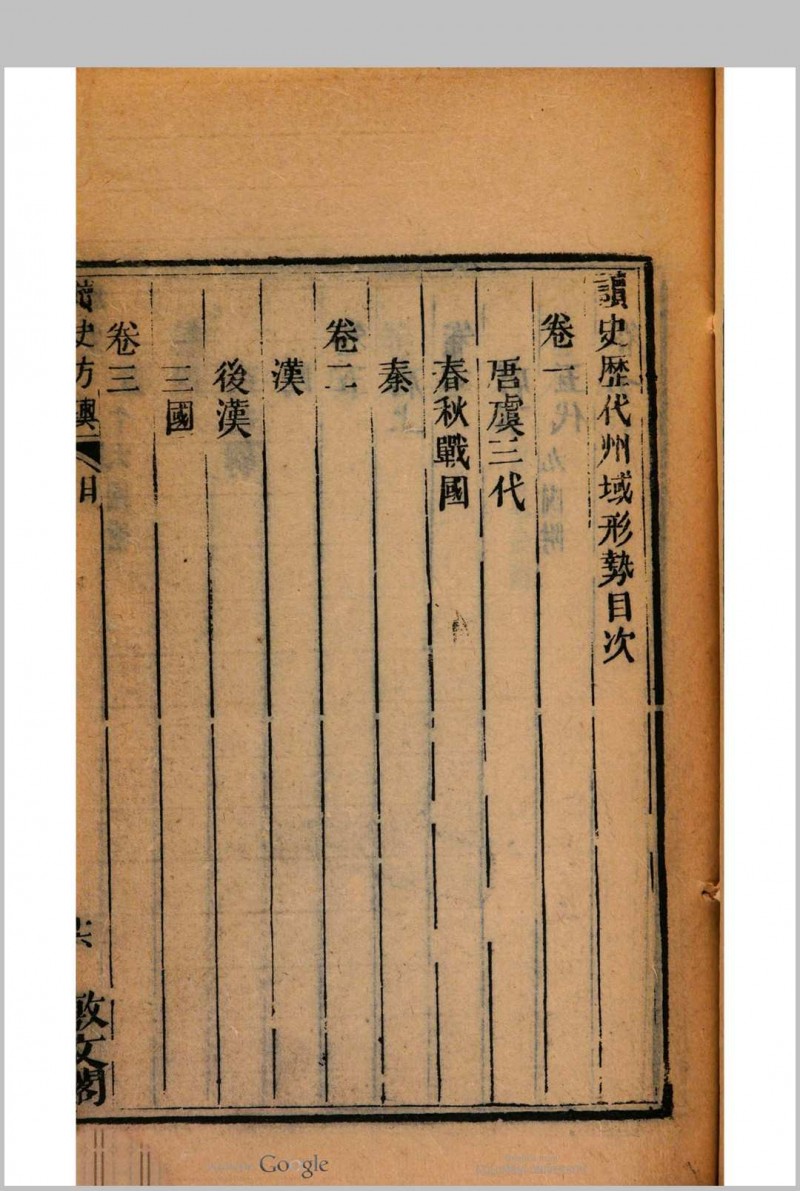 讀史歷代州域形勢目次
卷一
唐虞三代
春秋戰國
秦
卷二
漢
後漢
三國
卷三
讀史方輿
目
敷文閣
Google